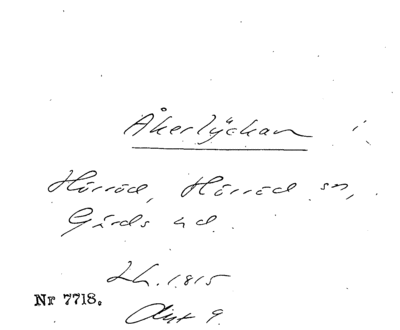 Åkerlyckan i
Hörröd, Hörröd sn,
Gärds hd.
Lh. 1815
Nr 7718.
Akt 9.